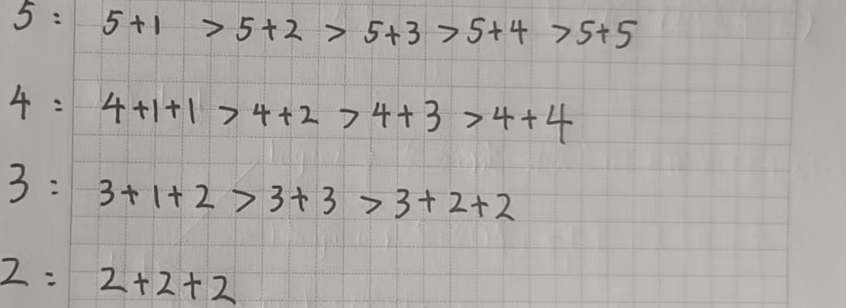 5: 5+1 > 5+2 > 5+3 > 5+4 > 5+5
4: 4+1+1 > 4+2 > 4+3 > 4+4
3: 3+1+2 > 3+3 > 3+2+2
2: 2+2+2